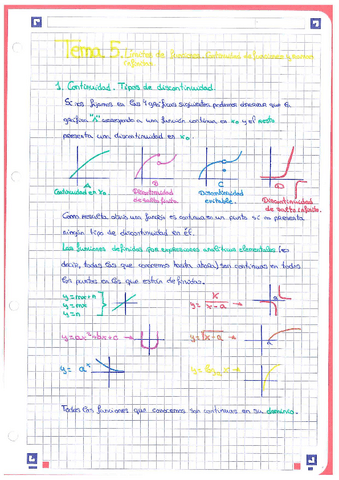 Tema 5. Límites de funciones. Continuidad de funciones y ramas
infinitas
1. Continuidad. Tipos de discontinuidad
Si nos fijamos en las 4 gráficas siguientes podemos observar que la
gráfica "A" corresponde a una función continua en x₀ y el resto
presenta una discontinuidad en x₀.
A B C D
Continuidad en x₀. Discontinuidad de salto finito. Discontinuidad evitable. Discontinuidad de salto infinito.
Como resulta obvio, una función es continua en un punto si no presenta
ningún tipo de discontinuidad en él.
Las funciones definidas por expresiones analíticas elementales (es
decir, todas las que conocemos hasta ahora) son continuas en todos
los puntos en los que están definidas.
y=mx+n
y=mx
y=n
y= x/x-a →
y=ax²+bx+c →
y=√x-a →
y= aˣ
y=logₐ x →
Todas las funciones que conocemos son continuas en su dominio.